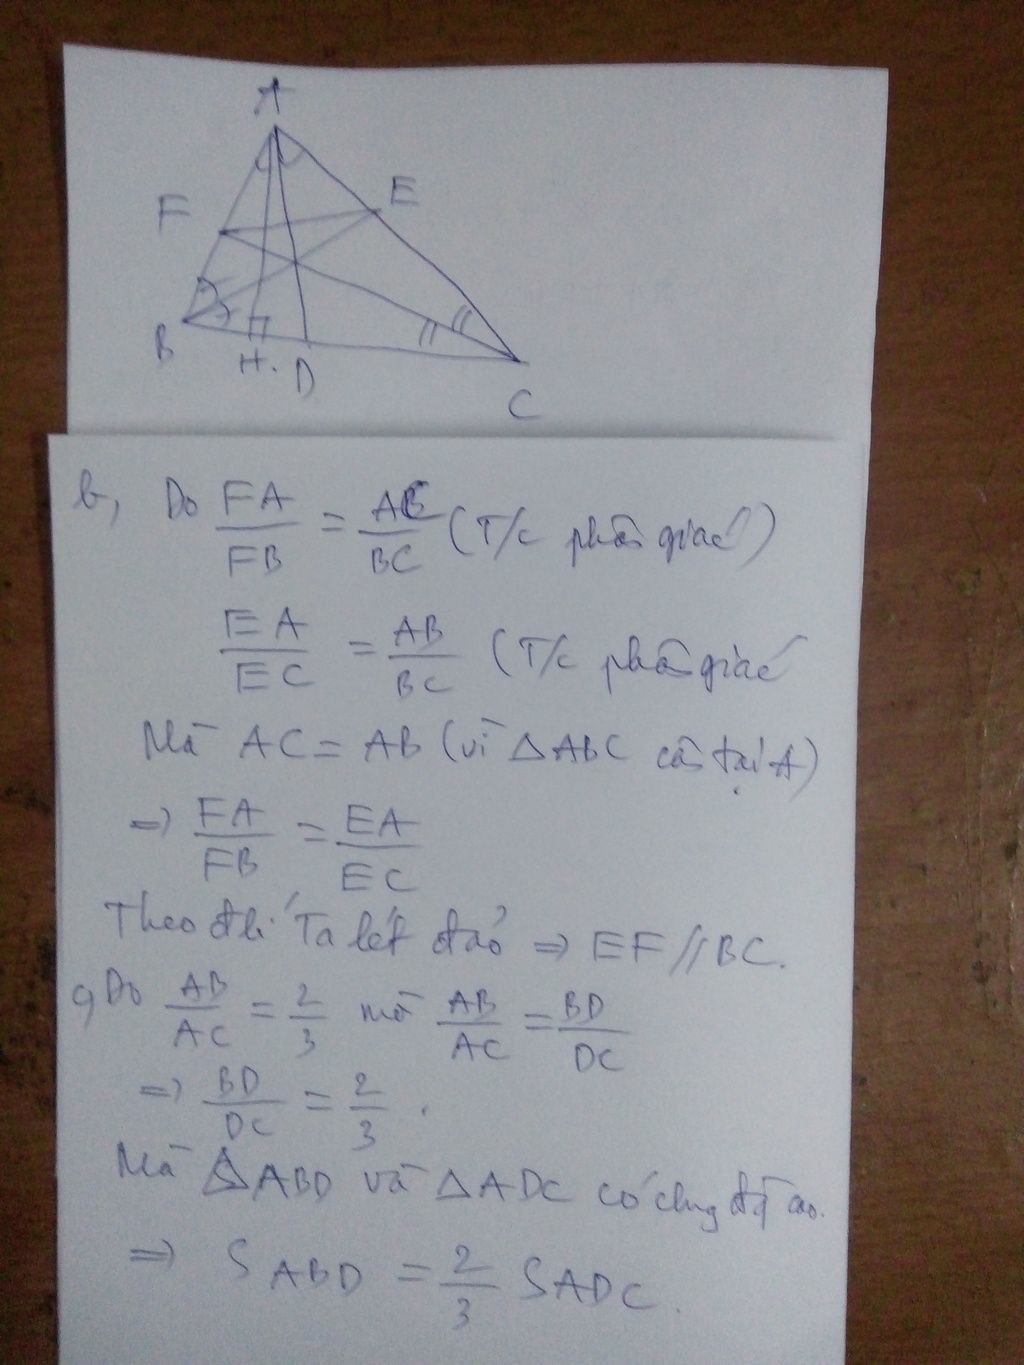 A
F
E
B
H.
D
C
b, Do FA/FB = AC/BC (T/c phân giác)
EA/EC = AB/BC (T/c phân giác
Mà AC = AB (vì ΔABC cân tại A)
=> FA/FB = EA/EC
Theo đlí Ta lét đảo => EF // BC.
c, Do AB/AC = 2/3 mà AB/AC = BD/DC
=> BD/DC = 2/3.
Mà ΔABD và ΔADC có chung đg cao.
=> S ABD = 2/3 S ADC.